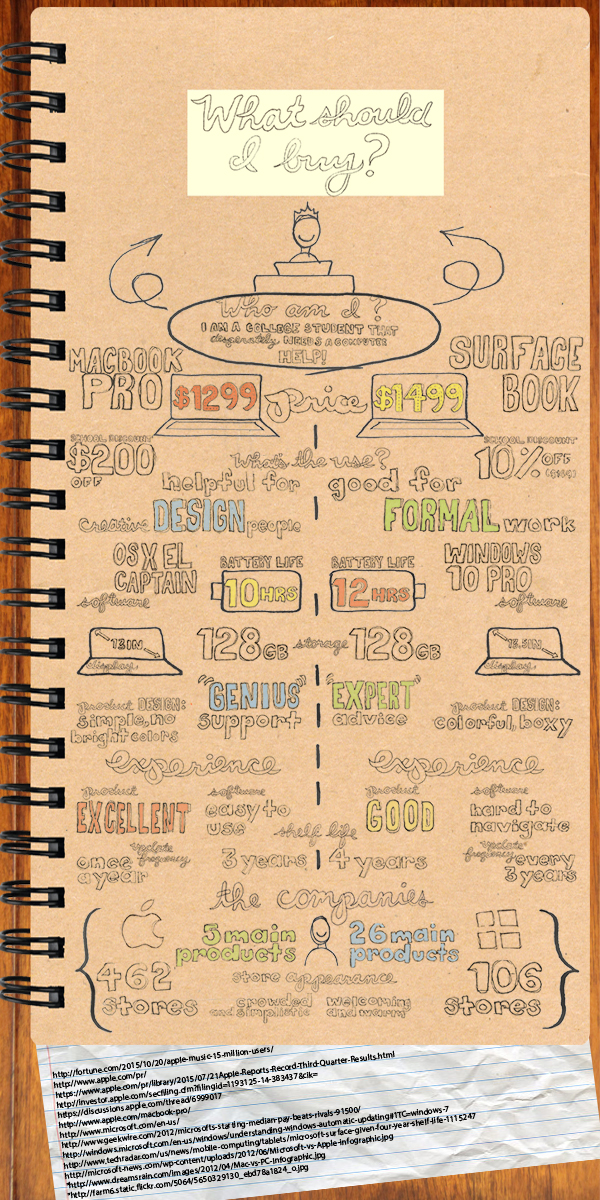 What should
I buy?
Who am I?
I AM A COLLEGE STUDENT THAT
desperately NEEDS A COMPUTER
HELP!
MACBOOK
PRO
$1299
Price
$1499
SURFACE
BOOK
SCHOOL DISCOUNT
$200
OFF
SCHOOL DISCOUNT
10% OFF
What's the use?
helpful for
Creative DESIGN people
good for
FORMAL work
OSX EL
CAPTAIN
software
BATTERY LIFE
10 HRS
BATTERY LIFE
12 HRS
WINDOWS
10 PRO
software
13IN
display
128GB storage 128GB
13.5IN
display
product DESIGN:
simple, no
bright colors
"GENIUS"
support
"EXPERT"
advice
product DESIGN:
colorful, boxy
experience
experience
product
EXCELLENT
software
easy to
use
product
GOOD
software
hard to
navigate
shelf life
update frequency
once
a year
3 years
4 years
update frequency
every
3 years
the companies
5 main
products
26 main
products
462
stores
store appearance
crowded
and simplistic
welcoming
and warm
106
stores
http://fortune.com/2015/10/20/apple-music-15-million-users/
http://www.apple.com/pr/
https://www.apple.com/pr/library/2015/07/21Apple-Reports-Record-Third-Quarter-Results.html
http://investor.apple.com/secfiling.cfm?filingid=1193125-14-383437&cik=
https://discussions.apple.com/thread/6999017
http://www.apple.com/macbook-pro/
http://www.microsoft.com/en-us/
http://www.geekwire.com/2012/microsofts-starting-median-pay-beats-rivals-91500/
http://windows.microsoft.com/en-us/windows/understanding-windows-automatic-updating#1TC=windows-7
http://www.techradar.com/us/news/mobile-computing/tablets/microsoft-surface-given-four-year-shelf-life-1115247
http://microsoft-news.com/wp-content/uploads/2012/06/Microsoft-vs-Apple-infographic.jpg
*http://www.dreamsrain.com/images/2012/04/Mac-vs-PC-Infographic.jpg
*http://farm6.static.flickr.com/5064/5650329130_ebd78a1824_o.jpg